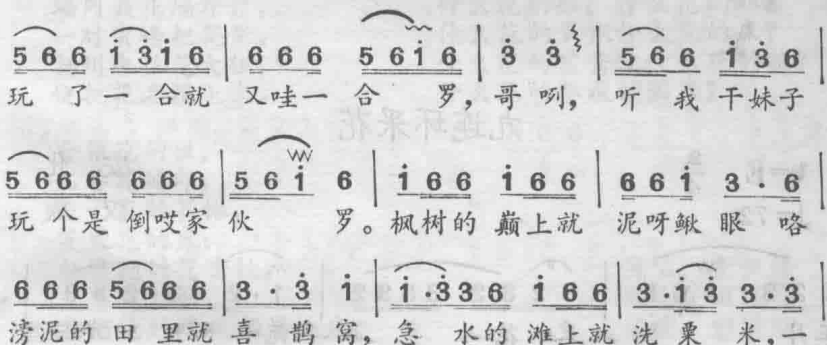 5 6 6 i 3 i 6 | 6 6 6 5 6 i 6 | 3 3 | 5 6 6 i 3 6 |
玩 了 一 合就 又哇一 合 罗, 哥 咧, 听 我 干妹子
5 6 6 6 6 6 6 | 5 6 i 6 | i 6 6 i 6 6 | 6 6 i 3 · 6 |
玩 个是 倒哎家 伙 罗。枫树的 巅上就 泥呀鳅 眼 咯
6 6 6 5 6 6 6 | 3 · 3 i | i · 3 3 6 i 6 6 | 3 · i 3 3 · 3 |
滂泥的 田 里就 喜 鹊 窝, 急 水的 滩上就 洗 粟 米, 一